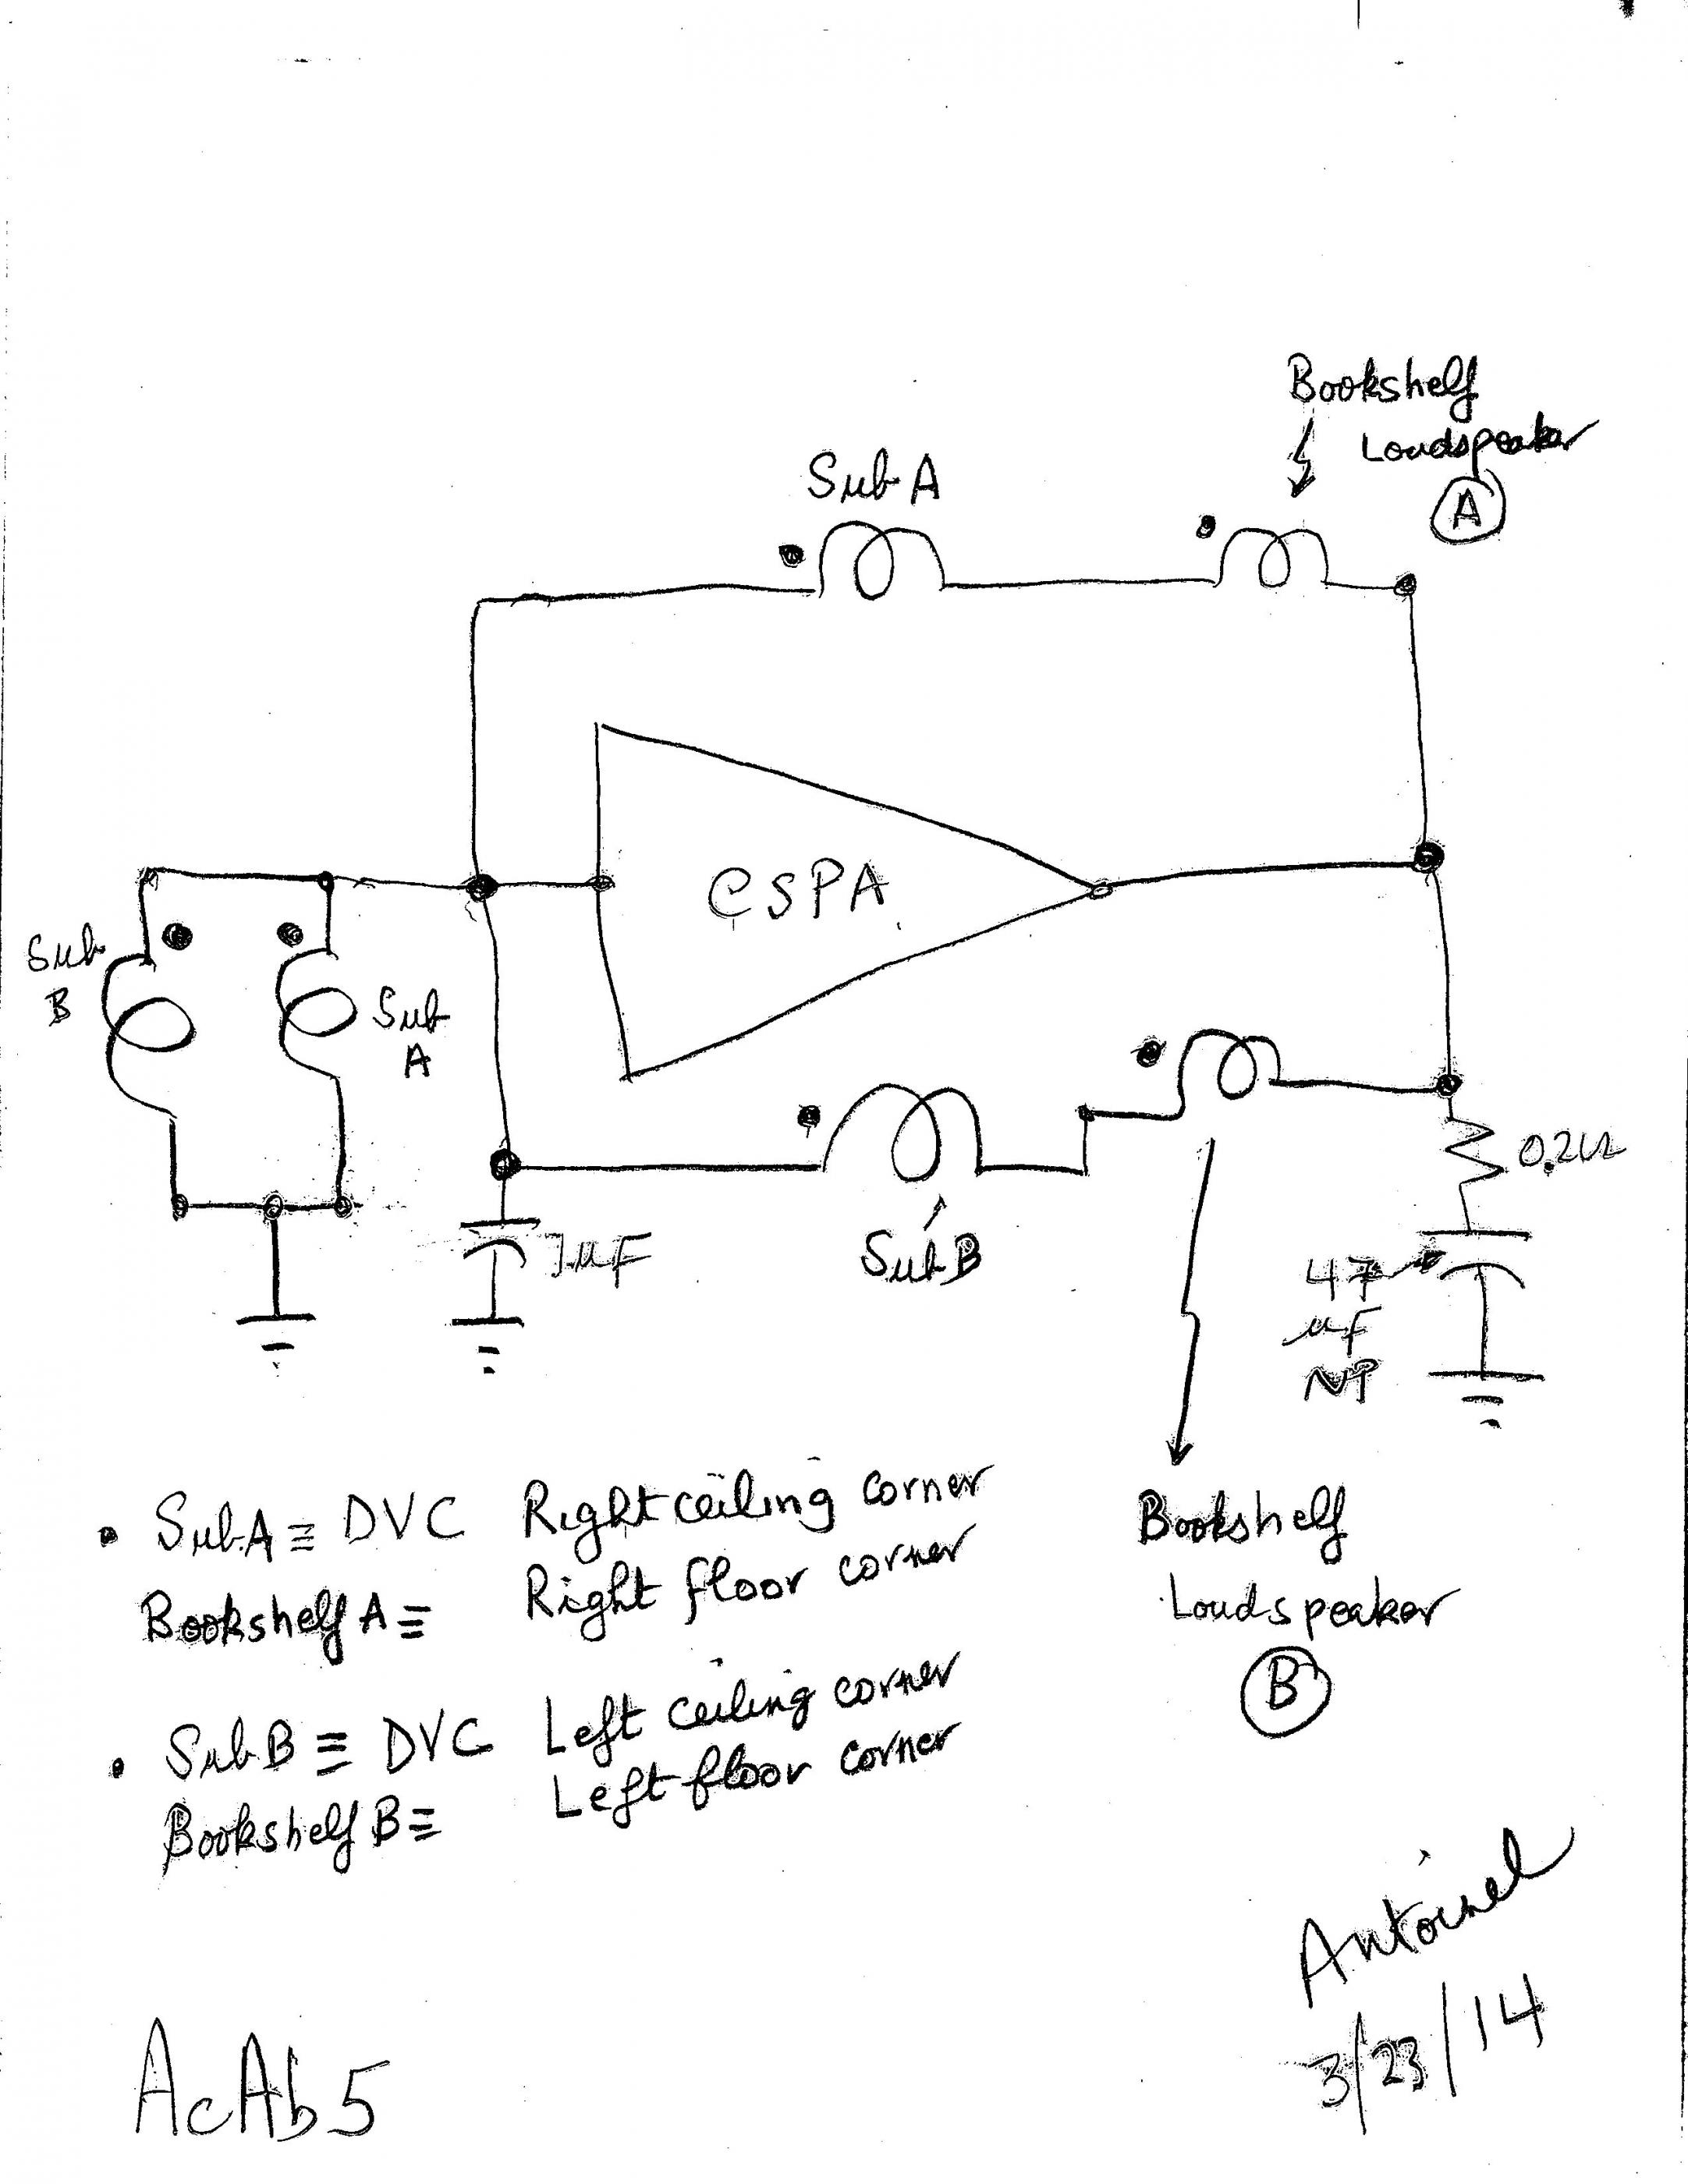 Bookshelf
Loudspeaker
A
Sub A
CSPA
Sub
B
Sub
A
0.2Ω
1µF
Sub B
47
µF
NP
• Sub A ≡ DVC Right ceiling corner
Bookshelf A ≡ Right floor corner
Bookshelf
Loudspeaker
B
• Sub B ≡ DVC Left ceiling corner
Bookshelf B ≡ Left floor corner
Antoinel
3/23/14
AcAb5